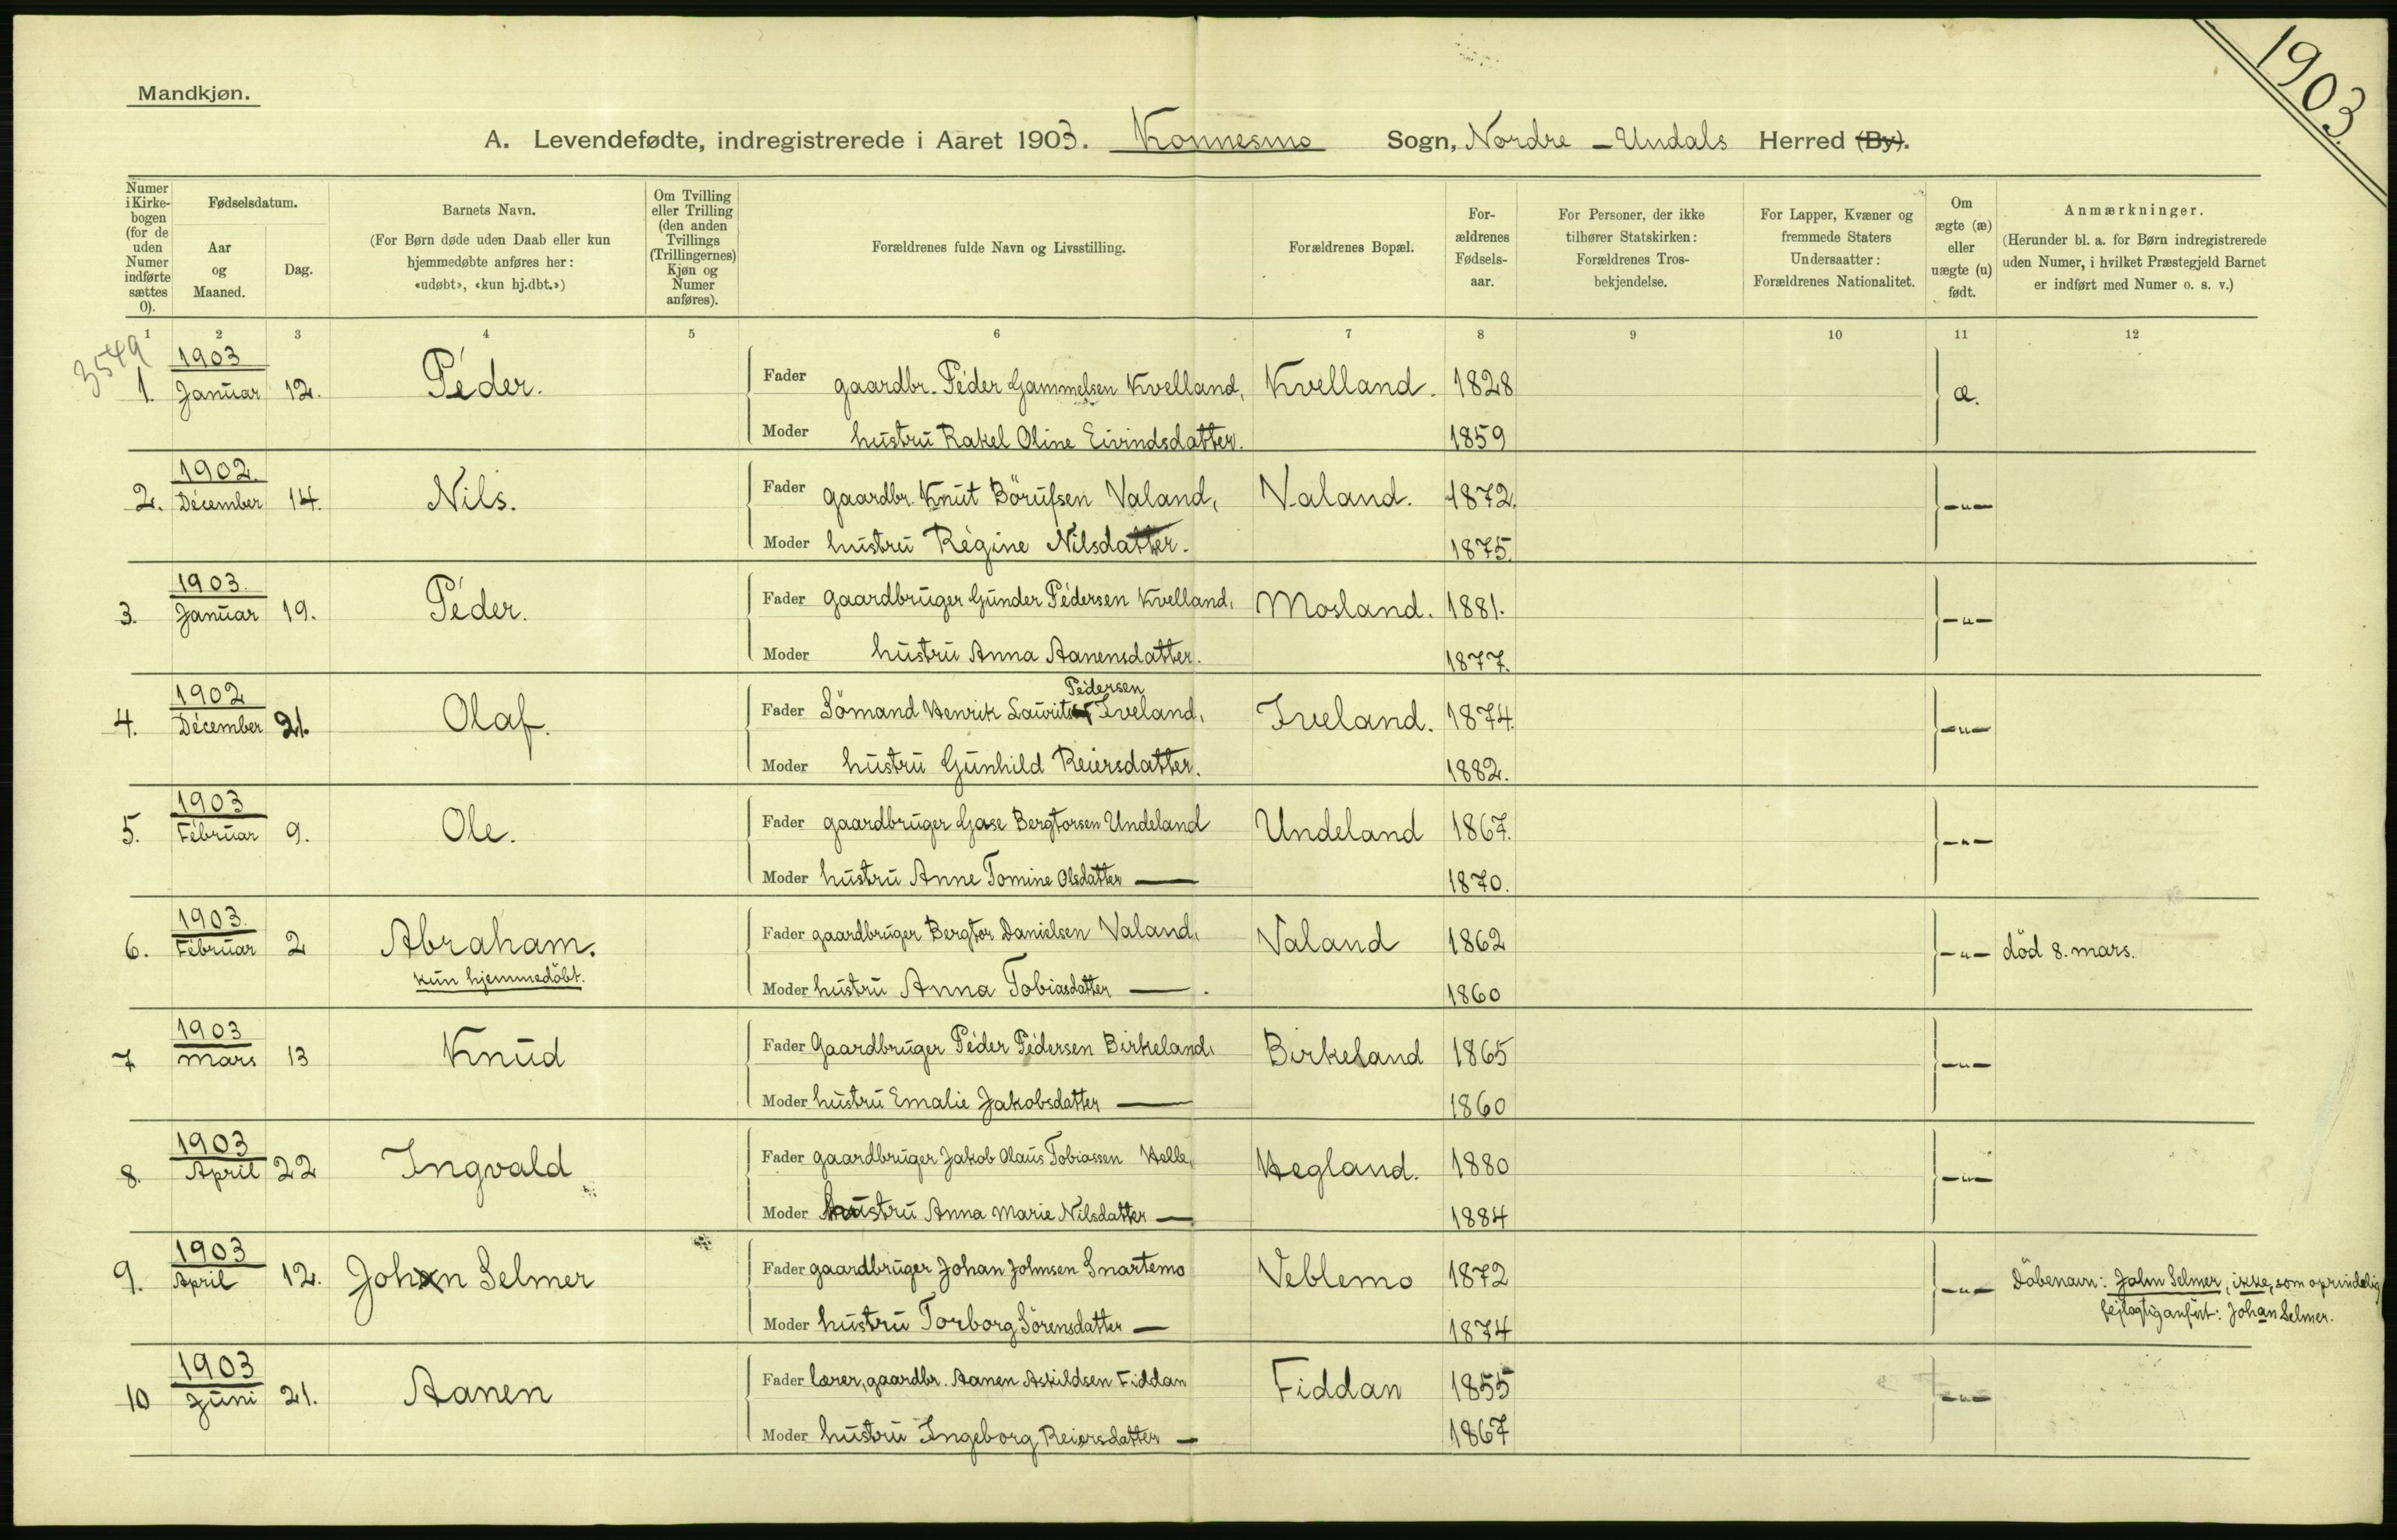 1903.
Mandkjøn.
A. Levendefødte, indregistrerede i Aaret 1903. Konnesmo Sogn, Nordre - Undals Herred (By).
Numer i Kirkebogen (for de uden Numer indførte sættes 0).
Fødselsdatum.
Aar og Maaned.
Dag.
Barnets Navn.
(For Børn døde uden Daab eller kun hjemmedøbte anføres her: «udøbt», «kun hj.dbt.»)
Om Tvilling eller Trilling (den anden Tvillings (Trillingernes) Kjøn og Numer anføres).
Forældrenes fulde Navn og Livsstilling.
Forældrenes Bopæl.
For-ældrenes Fødsels-aar.
For Personer, der ikke tilhører Statskirken: Forældrenes Tros-bekjendelse.
For Lapper, Kvæner og fremmede Staters Undersaatter: Forældrenes Nationalitet.
Om ægte (æ) eller uægte (u) født.
Anmærkninger.
(Herunder bl. a. for Børn indregistrerede uden Numer, i hvilket Præstegjeld Barnet er indført med Numer o. s. v.)
1 2 3 4 5 6 7 8 9 10 11 12
3549
1903
1. Januar 12. Péder. Fader gaardbr. Péder Gammelsen Kvelland, Kvelland. 1828 æ.
Moder hustru Rakel Oline Eivindsdatter. 1859
1902.
2. December 14. Nils. Fader gaardbr. Knut Börufsen Valand, Valand. 1872. -"-
Moder hustru Régine Nilsdatter. 1875.
1903.
3. Januar 19. Péder. Fader gaardbruger Gunder Pédersen Kvelland, Mosland. 1881. -"-
Moder hustru Anna Aanensdatter. 1877.
1902
Pedersen
4. December 21. Olaf. Fader Sömand Henrik Laurits Iveland, Iveland. 1874. -"-
Moder hustru Gunhild Reiersdatter. 1882.
1903
5. Februar 9. Ole. Fader gaardbruger Gase Bergtorsen Undeland Undeland 1867. -"-
Moder hustru Anne Tomine Olsdatter — 1870.
1903
6. Februar 2 Abraham. Fader gaardbruger Bergtor Danielsen Valand, Valand 1862 -"- död 8. mars.
kun hjemmedöbt.
Moder hustru Anna Tobiasdatter — . 1860
1903
7 mars 13 Knud Fader Gaardbruger Péder Pédersen Birkeland, Birkeland 1865 -"-
Moder hustru Emalie Jakobsdatter — 1860
1903
8. April 22 Ingvald Fader gaardbruger Jakob Olaus Tobiassen Helle, Hegland. 1880 -"-
Moder hustru Anna Marie Nilsdatter — 1884
1903
9. April 12. John Selmer Fader gaardbruger Johan Johnsen Snartemo Veblemo 1872 -"- Döbenavn: John Selmer, ikke, som oprindelig
fejlagtig anført: Johan Selmer.
Moder hustru Torborg Sörensdatter — 1874
1903
10 Juni 21. Aanen Fader lærer, gaardbr. Aanen Askildsen Fiddan Fiddan 1855 -"-
Moder hustru Ingeborg Reiersdatter — 1867